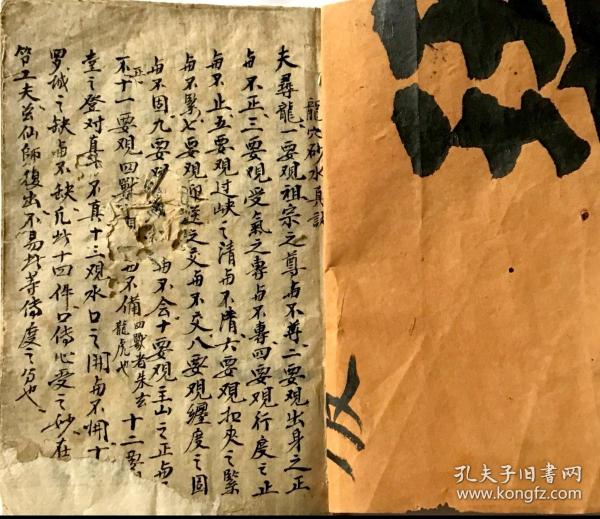 龍穴砂水真訣
夫尋龍一要观祖宗之尊与不尊二要观出身之正
与不正三要观受氣之專与不專四要观行度之止
与不止五要观过峽之清与不清六要观扣夾之緊
与不緊七要观迎送之交与不交八要观纏度之固
与不固九要观 与不会十要观主山之正与
不正十一要观四獸 与不備四獸者朱玄龍虎也十二要
堂之登对真 不真十三观水口之関与不関十
罗城之缺与不缺凡此十四件口傳心受之妙在
工夫 仙師復出不易此等傳度之 也
孔夫子旧书网
www.kongfz.com